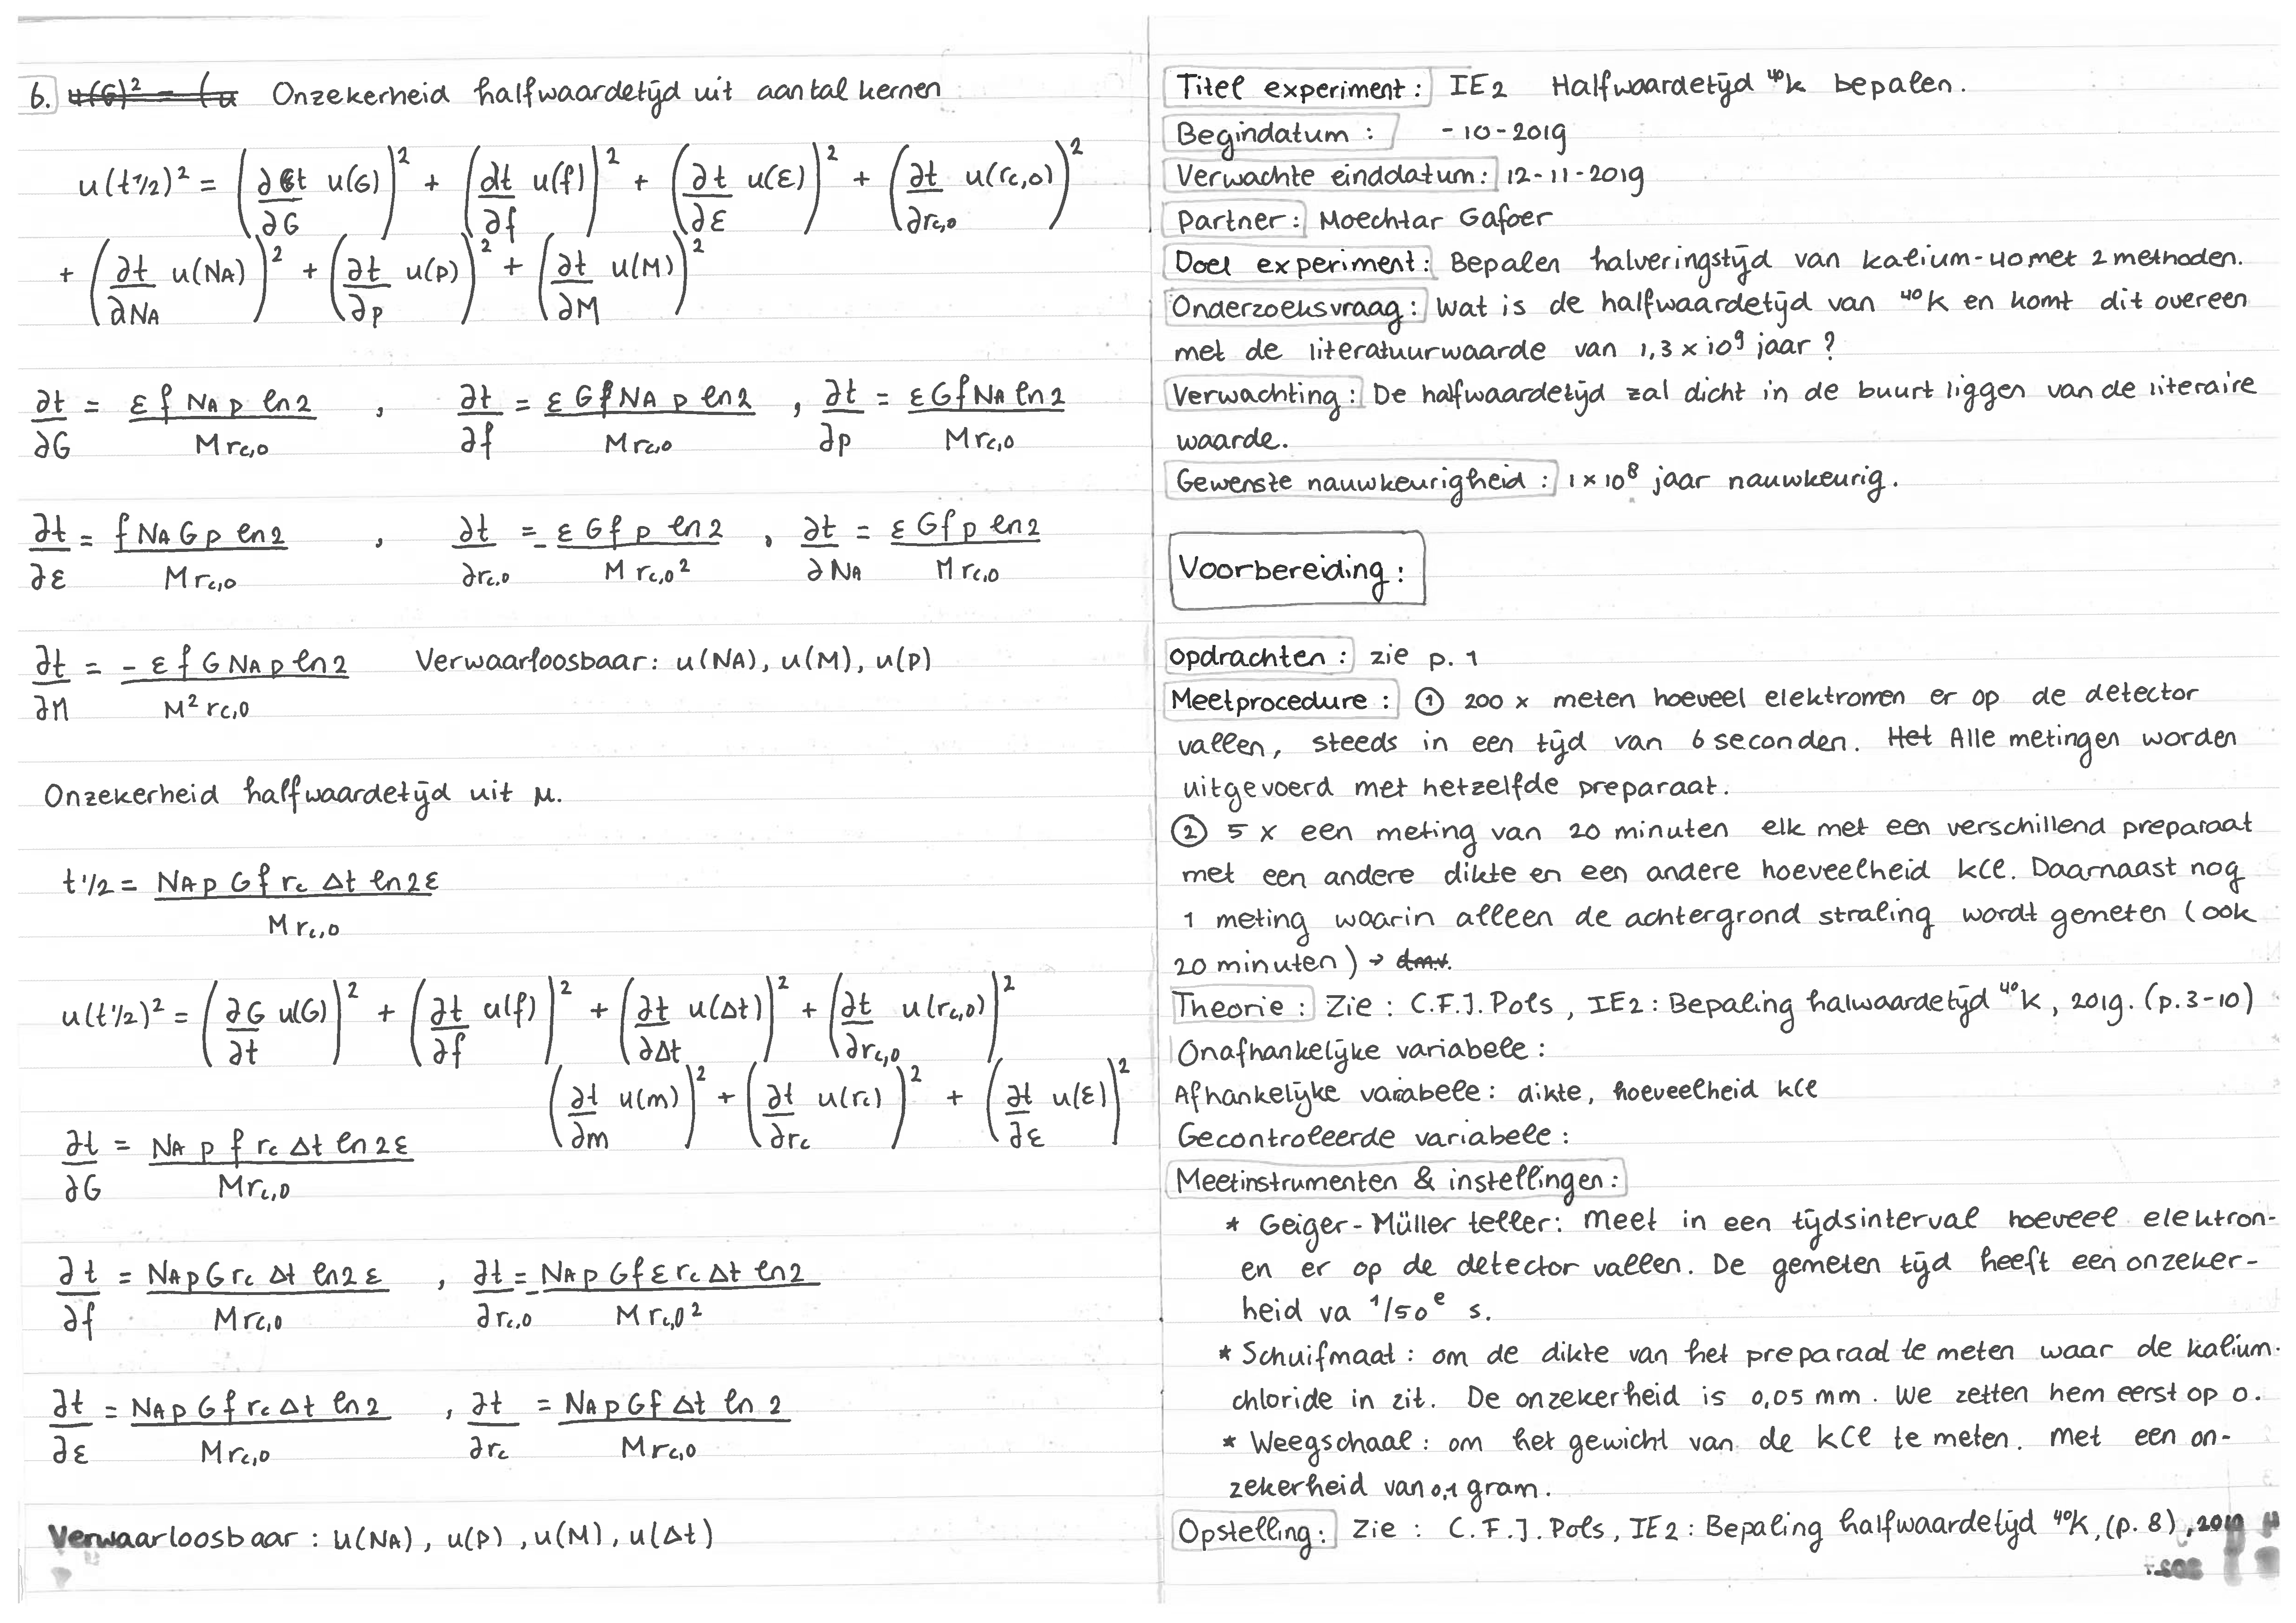 6. u(G)² = (u Onzekerheid halfwaardetijd uit aantal kernen
u(t1/2)² = (∂t/∂G u(G))² + (∂t/∂f u(f))² + (∂t/∂ε u(ε))² + (∂t/∂rc,0 u(rc,0))²
+ (∂t/∂NA u(NA))² + (∂t/∂p u(p))² + (∂t/∂M u(M))²
∂t/∂G = ε f NA p ln2 / M rc,0 , ∂t/∂f = ε G f NA p ln2 / M rc,0 , ∂t/∂p = ε G f NA ln2 / M rc,0
∂t/∂ε = f NA G p ln2 / M rc,0 , ∂t/∂rc,0 = - ε G f p ln2 / M rc,0² , ∂t/∂NA = ε G f p ln2 / M rc,0
∂t/∂M = - ε f G NA p ln2 / M² rc,0 Verwaarloosbaar: u(NA), u(M), u(p)
Onzekerheid halfwaardetijd uit μ.
t1/2 = NA p G f rc Δt ln2 ε / M rc,0
u(t1/2)² = (∂G/∂t u(G))² + (∂t/∂f u(f))² + (∂t/∂Δt u(Δt))² + (∂t/∂rc,0 u(rc,0))²
(∂t/∂m u(m))² + (∂t/∂rc u(rc))² + (∂t/∂ε u(ε))²
∂t/∂G = NA p f rc Δt ln2 ε / M rc,0
∂t/∂f = NA p G rc Δt ln2 ε / M rc,0 , ∂t/∂rc,0 = - NA p G f ε rc Δt ln2 / M rc,0²
∂t/∂ε = NA p G f rc Δt ln2 / M rc,0 , ∂t/∂rc = NA p G f Δt ln 2 / M rc,0
Verwaarloosbaar : u(NA), u(p), u(M), u(Δt)
Titel experiment : IE2 Halfwaardetijd ⁴⁰k bepalen.
Begindatum : -10-2019
Verwachte einddatum : 12-11-2019
Partner : Moechtar Gafoer
Doel experiment : Bepalen halveringstijd van kalium-40 met 2 methoden.
Onderzoeksvraag : Wat is de halfwaardetijd van ⁴⁰K en komt dit overeen
met de literatuurwaarde van 1,3 x 10⁹ jaar ?
Verwachting : De halfwaardetijd zal dicht in de buurt liggen van de literaire
waarde.
Gewenste nauwkeurigheid : 1 x 10⁸ jaar nauwkeurig.
Voorbereiding :
opdrachten : zie p. 1
Meetprocedure : ① 200 x meten hoeveel elektromen er op de detector
vallen, steeds in een tijd van 6 seconden. Het Alle metingen worden
uitgevoerd met hetzelfde preparaat.
② 5 x een meting van 20 minuten elk met een verschillend preparaat
met een andere dikte en een andere hoeveelheid kCl. Daarnaast nog
1 meting waarin alleen de achtergrond straling wordt gemeten (ook
20 minuten) → d.m.v.
Theorie : Zie : C.F.J. Pols, IE2 : Bepaling halwaardetijd ⁴⁰K, 2019. (p.3-10)
Onafhankelijke variabele :
Afhankelijke variabele : dikte, hoeveelheid kCl
Gecontroleerde variabele :
Meetinstrumenten & instellingen :
* Geiger-Müller teller : meet in een tijdsinterval hoeveel elektron-
en er op de detector vallen. De gemeten tijd heeft een onzeker-
heid va 1/50ᵉ s.
* Schuifmaat : om de dikte van het preparaat te meten waar de kalium-
chloride in zit. De onzekerheid is 0,05 mm. We zetten hem eerst op 0.
* Weegschaal : om het gewicht van de KCl te meten. Met een on-
zekerheid van 0,1 gram.
Opstelling : Zie : C.F.J. Pols, IE2 : Bepaling halfwaardetijd ⁴⁰K, (p. 8), 2019